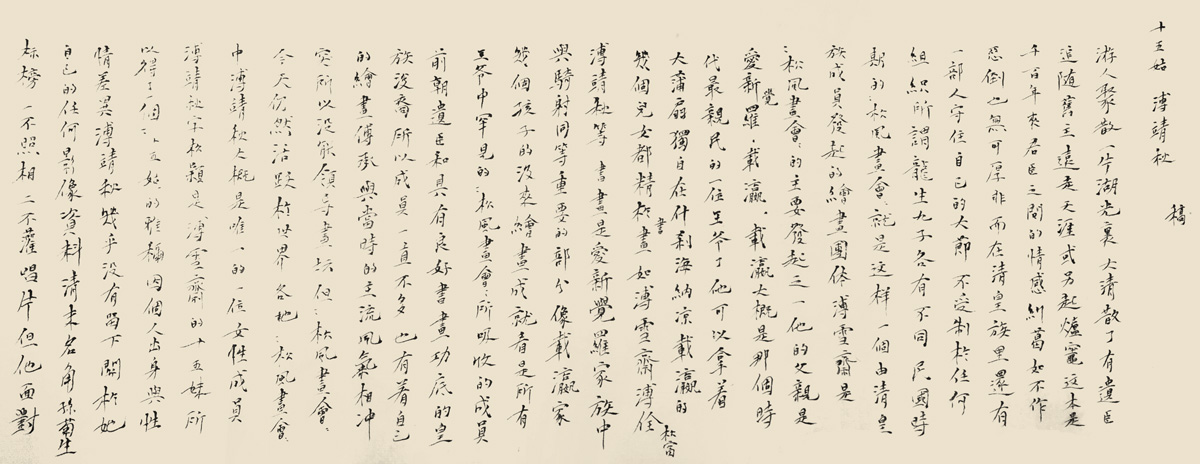 十五姑 溥靖秋
稿
游人聚散一片湖光裏大清散了有遺臣
追随舊主遠走天涯或另起爐竈這本是
千百年來君臣之間的情感糾葛如不作
惡倒也無可厚非而在清皇族里還有
一部人守住自己的大節不受制於任何
組織所謂龍生九子各有不同民國時
期的松風畫會就是这样一個由清皇
族成員發起的繪畫團體溥雪齋是
松風畫會的主要發起之一他的父親是
愛新覺羅·載瀛·載瀛大概是那個時
代最親民的一位王爷了他可以拿着
大蒲扇獨自在什刹海納凉載瀛的
幾個兒女都精於書畫如溥雪齋溥佺
松窗
溥靖秋等 書畫是愛新覺羅家族中
與騎射同等重要的部分像載瀛家
幾個孩子的没來繪畫成就者是所有
王爷中罕見的松風畫會所吸收的成員
前朝遺臣和具有良好書畫功底的皇
族没裔所以成員一直不多也有着自己
的繪畫傳承與當時的主流風氣相冲
突所以没能領导畫坛但松風畫會
今天仍然活跃於世界各地松風畫會
中溥靖秋大概是唯一的一位女性成員
溥靖秋字松顥是溥雪齋的十五妹所
以得了個十五姑的雅稱因個人出身與性
情差異溥靖秋幾乎没有留下關於她
自己的任何影像資料清末名角孫菊生
标榜一不照相二不灌唱片但他面對